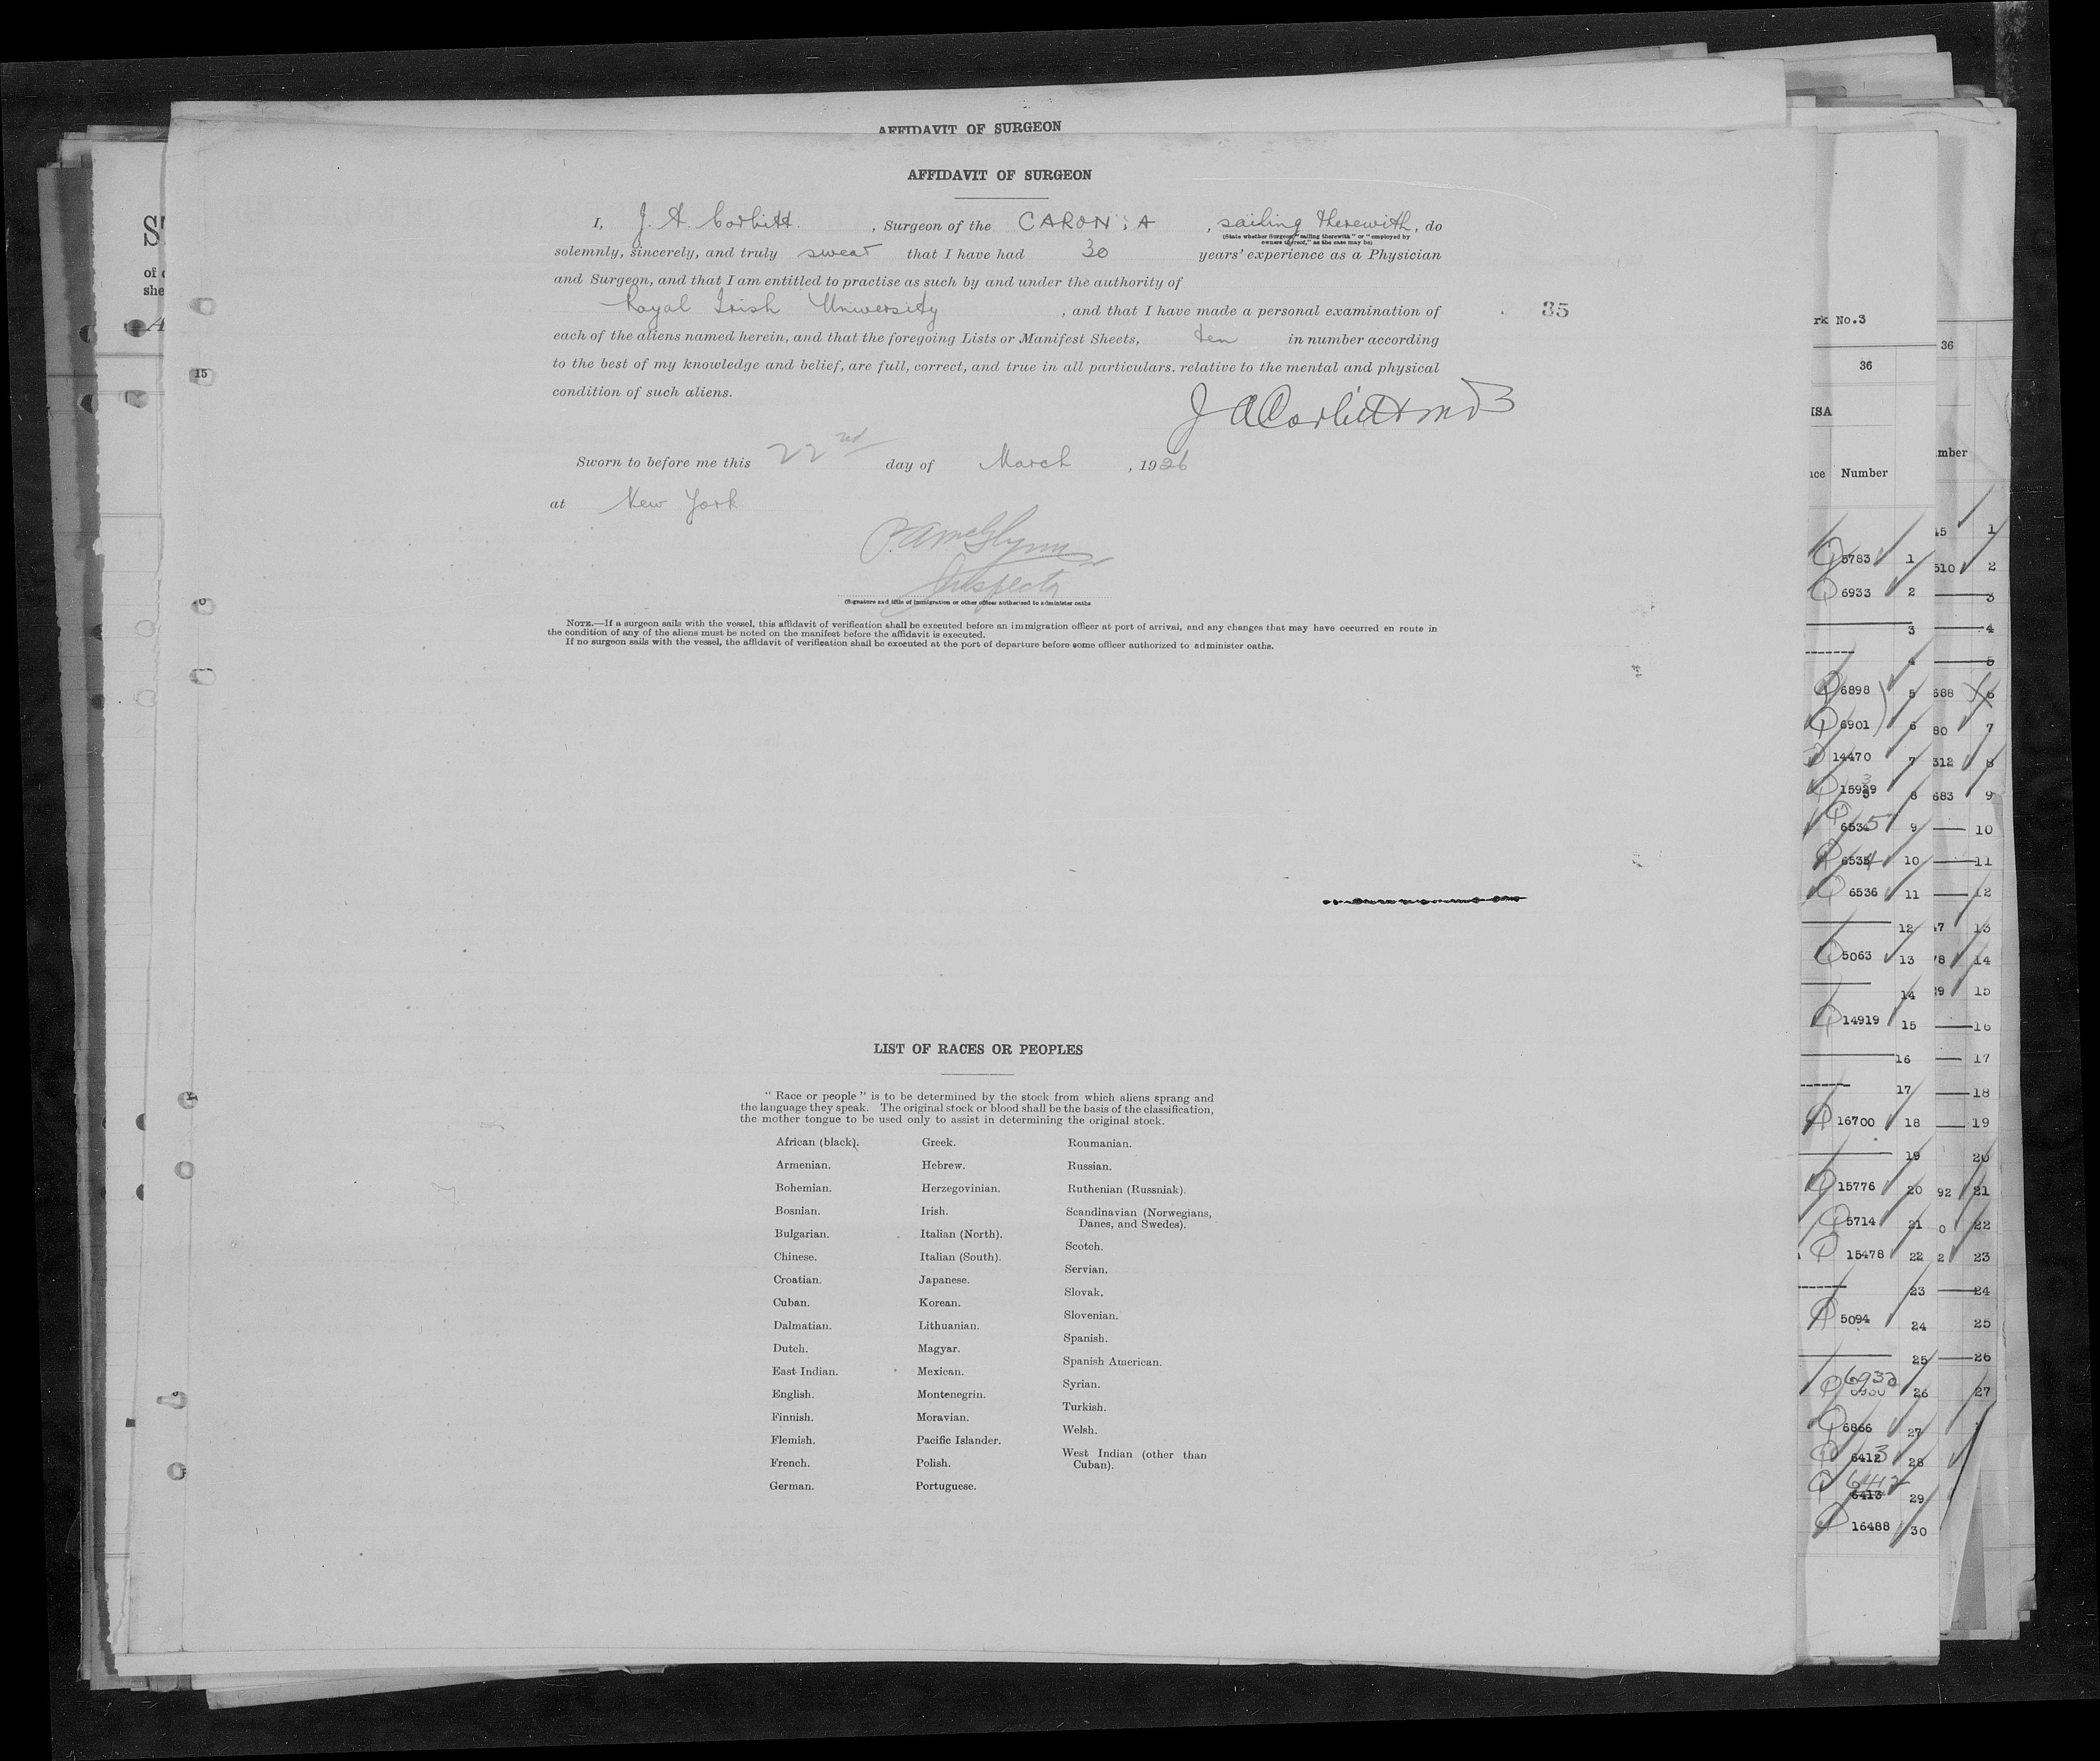 AFFIDAVIT OF SURGEON
AFFIDAVIT OF SURGEON
I, J. A. Corbitt. , Surgeon of the CARONIA , sailing therewith, do
(State whether Surgeon "sailing therewith" or "employed by
owners thereof," as the case may be)
solemnly, sincerely, and truly swear that I have had 30 years' experience as a Physician
and Surgeon, and that I am entitled to practise as such by and under the authority of
Royal Irish University , and that I have made a personal examination of
35
each of the aliens named herein, and that the foregoing Lists or Manifest Sheets, ten in number according
to the best of my knowledge and belief, are full, correct, and true in all particulars. relative to the mental and physical
condition of such aliens.
J A Corbitt MD
Sworn to before me this 22nd day of March , 1926
at New York
Inspector
(Signature and title of immigration or other officer authorized to administer oaths
NOTE.—If a surgeon sails with the vessel, this affidavit of verification shall be executed before an immigration officer at port of arrival, and any changes that may have occurred en route in
the condition of any of the aliens must be noted on the manifest before the affidavit is executed.
If no surgeon sails with the vessel, the affidavit of verification shall be executed at the port of departure before some officer authorized to administer oaths.
LIST OF RACES OR PEOPLES
" Race or people " is to be determined by the stock from which aliens sprang and
the language they speak. The original stock or blood shall be the basis of the classification,
the mother tongue to be used only to assist in determining the original stock.
African (black).
Armenian.
Bohemian.
Bosnian.
Bulgarian.
Chinese.
Croatian.
Cuban.
Dalmatian.
Dutch.
East Indian.
English.
Finnish.
Flemish.
French.
German.
Greek.
Hebrew.
Herzegovinian.
Irish.
Italian (North).
Italian (South).
Japanese.
Korean.
Lithuanian.
Magyar.
Mexican.
Montenegrin.
Moravian.
Pacific Islander.
Polish.
Portuguese.
Roumanian.
Russian.
Ruthenian (Russniak).
Scandinavian (Norwegians,
Danes, and Swedes).
Scotch.
Servian.
Slovak.
Slovenian.
Spanish.
Spanish American.
Syrian.
Turkish.
Welsh.
West Indian (other than
Cuban).
15
of
she
rk No.3
36
ISA
Number
5783 1
6933 2
3
4
6898 5
6901 6
14470 7
8
9
10
6536 11
12
5063 13
14
14919 15
16
17
16700 18
19
15776 20
5714 21
15478 22
23
5094 24
25
6932 26
6866 27
28
6412
6413 29
16488 30
36
mber
1
510 2
3
4
5
588 6
80 7
312 8
683 9
10
11
12
13
14
15
16
17
18
19
20
92 21
22
23
24
25
26
27